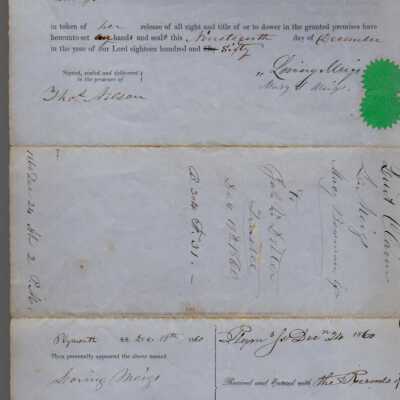 in token of her release of all right and title of or to dower in the granted premises
hereunto set hand and seal this Nineteenth day of December
in the year of our Lord eighteen hundred and Sixty
Signed, sealed and delivered
in the presence of
Loving Meigs
Mary H Meigs
Thos. Nelson
Quit Claim
Lo. Meigs
Mary
to
Trustee
Dec 19th 1860
B. 304 F. 31. —
1860 Dec 24 At 2 P. M.
Plymouth ss Dec. 19th 1860
Then personally appeared the above named
Loving Meigs
Plym. ss Dec 24 1860
Received and Entered with the Records of